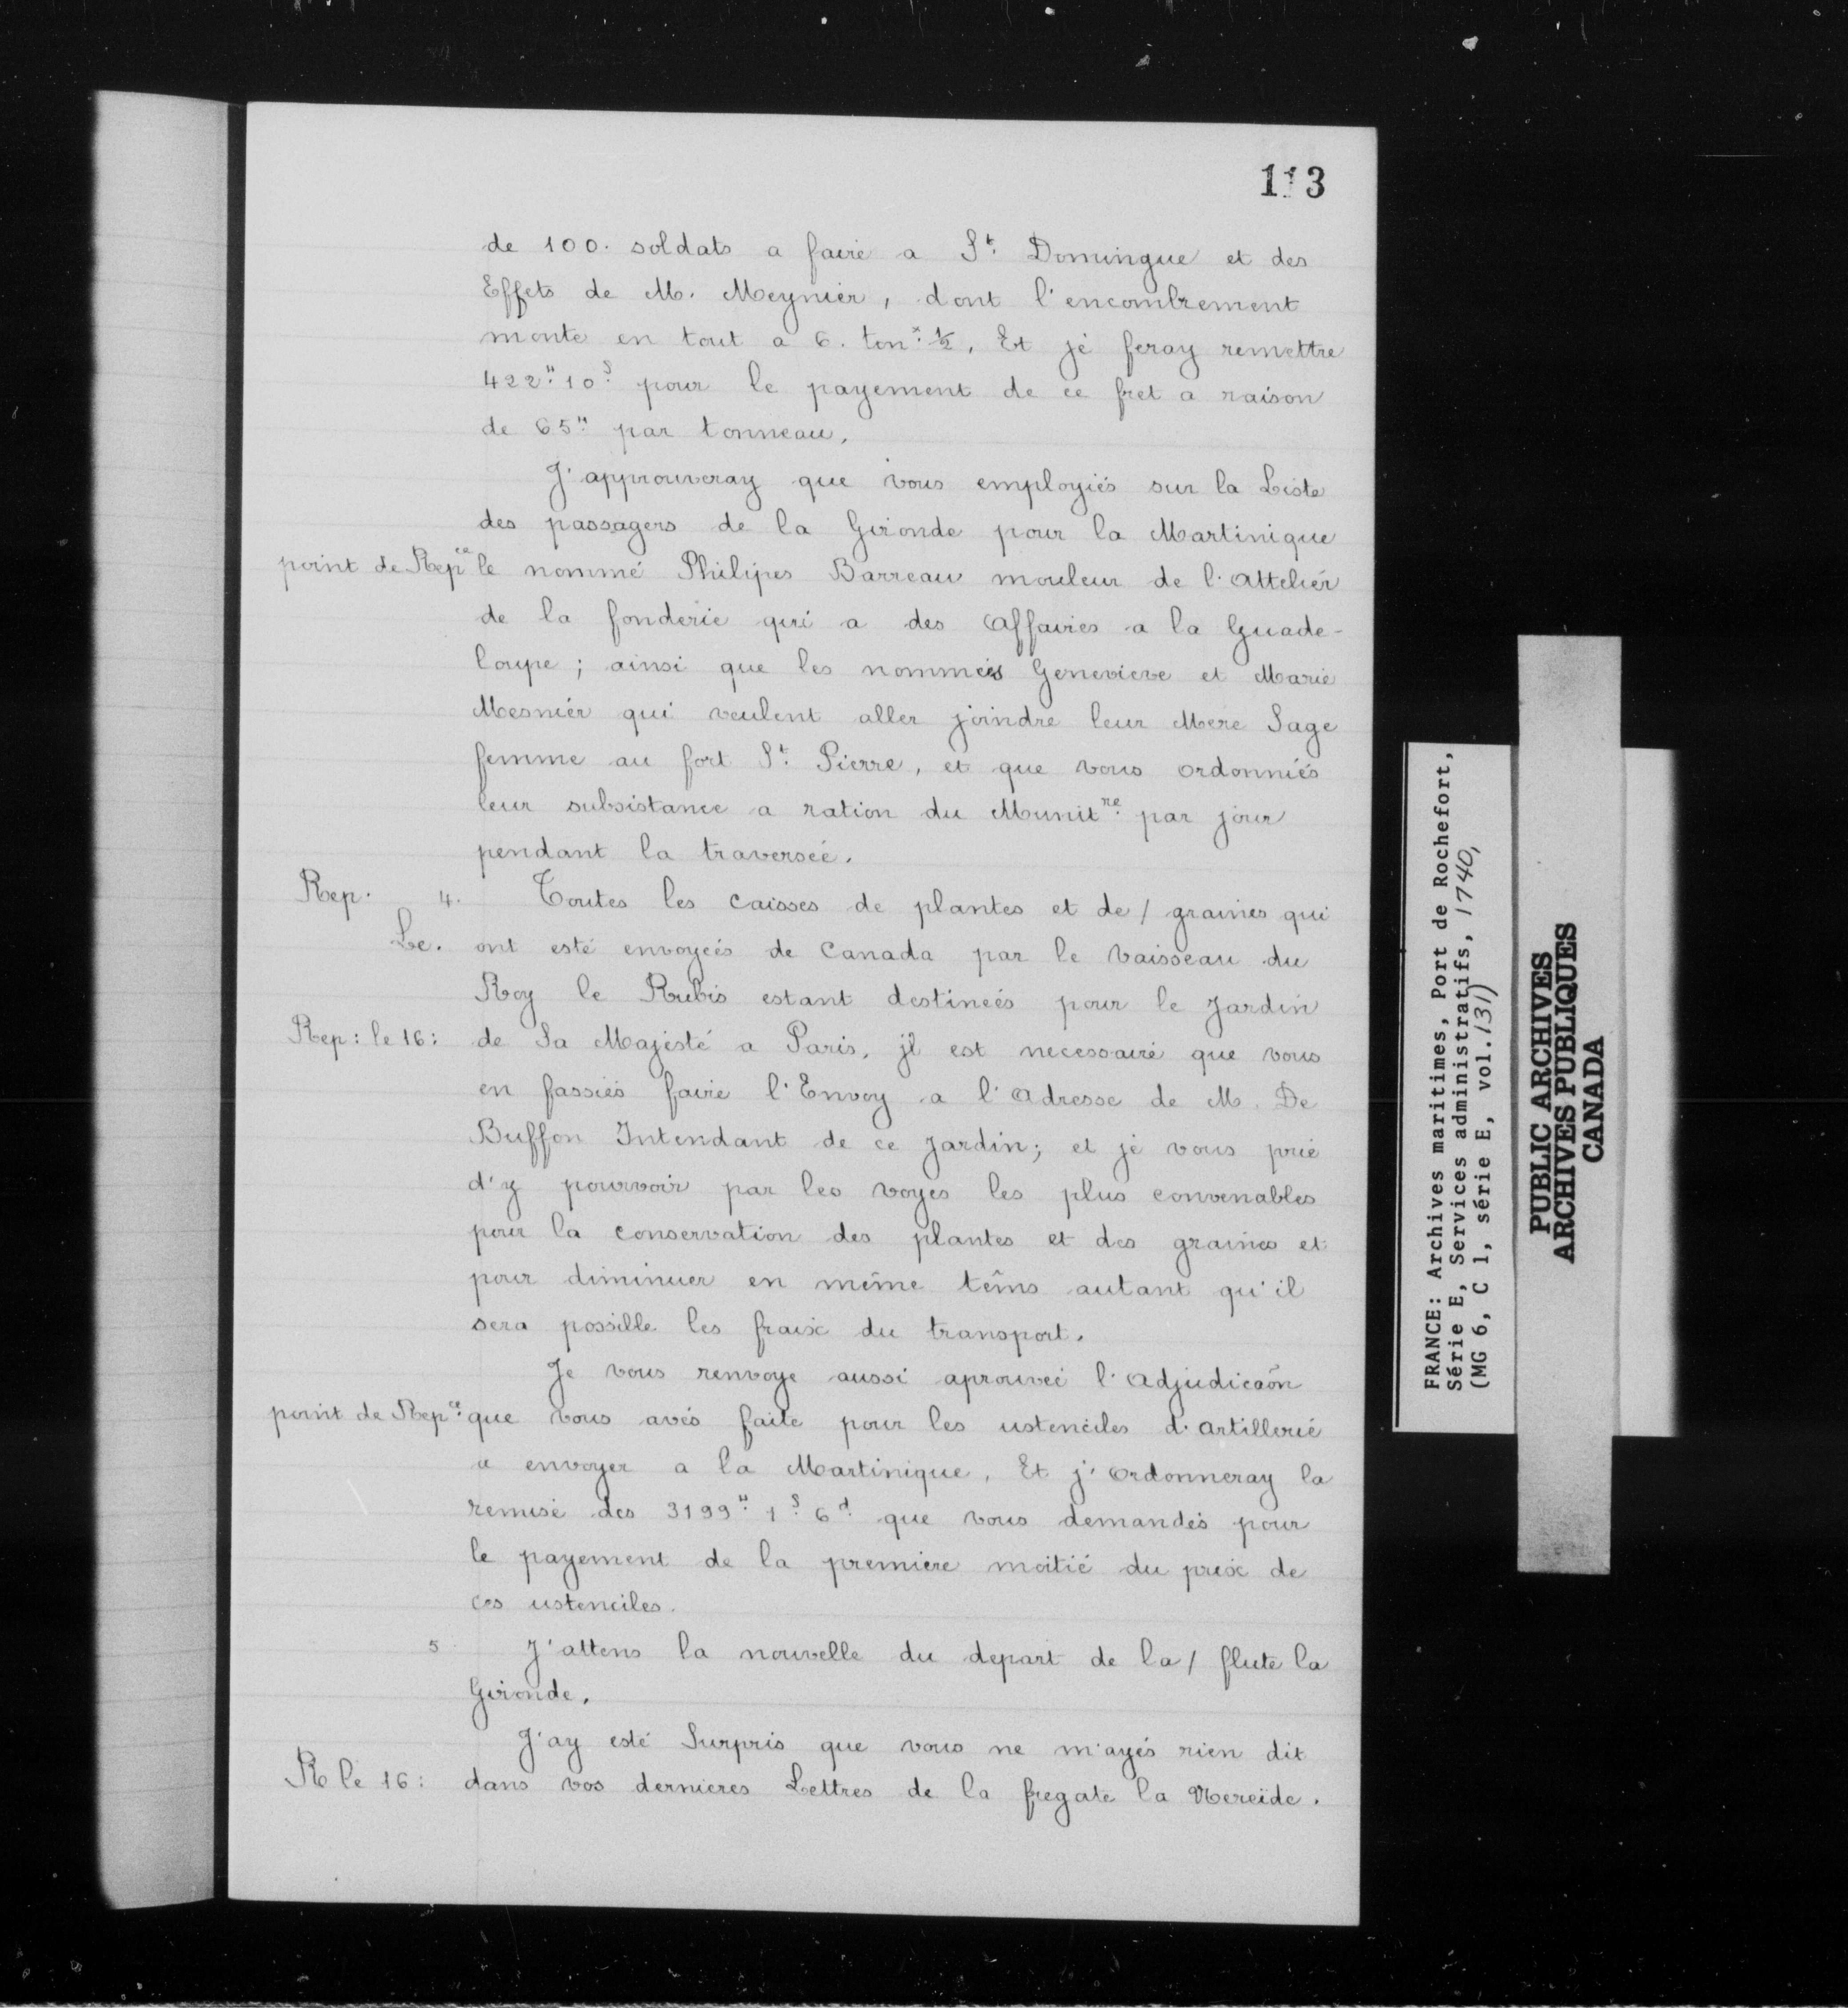 113
de 100. soldats a faire a St. Domingue et des
Effets de M. Meynier, dont l'encombrement
monte en tout a 6. tonx. 1/2, Et je feray remettre
422" 10s. pour le payement de ce fret a raison
de 65" par tonneau.
J'approuveray que vous employiés sur la Liste
des passagers de la Gironde pour la Martinique
point de Repce le nommé Philipes Barreau mouleur de l'Attelier
de la fonderie qui a des Affaires a la Guade-
loupe ; ainsi que les nommées Genevieve et Marie
Mesnier qui veulent aller joindre leur Mere Sage
femme au fort St. Pierre, et que vous ordonniés
leur subsistance a ration du Munitre. par jour
pendant la traversée.
Rep. 4. Toutes les caisses de plantes et de / graines qui
Le. ont esté envoyées de Canada par le vaisseau du
Roy le Rubis estant destinées pour le Jardin
Rep : le 16 : de Sa Majesté a Paris, jl est necessaire que vous
en fassiés faire l'Envoy a l'Adresse de M. De
Buffon Intendant de ce Jardin; et je vous prie
d'y pourvoir par les voyes les plus convenables
pour la conservation des plantes et des graines et
pour diminuer en même têms autant qu'il
sera possible les fraix du transport.
Je vous renvoye aussi aprouvée l'Adjudicaõn
point de Repce. que vous avés faite pour les ustenciles d'artillerie
a envoyer a la Martinique, Et j'ordonneray la
remise des 3199" 1s. 6d. que vous demandés pour
le payement de la premiere moitié du prix de
ces ustenciles.
5 J'attens la nouvelle du depart de la / flute la
Gironde.
J'ay esté Surpris que vous ne m'ayés rien dit
R le 16 : dans vos dernieres Lettres de la fregate la Nereïde.
FRANCE: Archives maritimes, Port de Rochefort,
Série E, Services administratifs, 1740,
(MG 6, C 1, série E, vol. 131)
PUBLIC ARCHIVES
ARCHIVES PUBLIQUES
CANADA